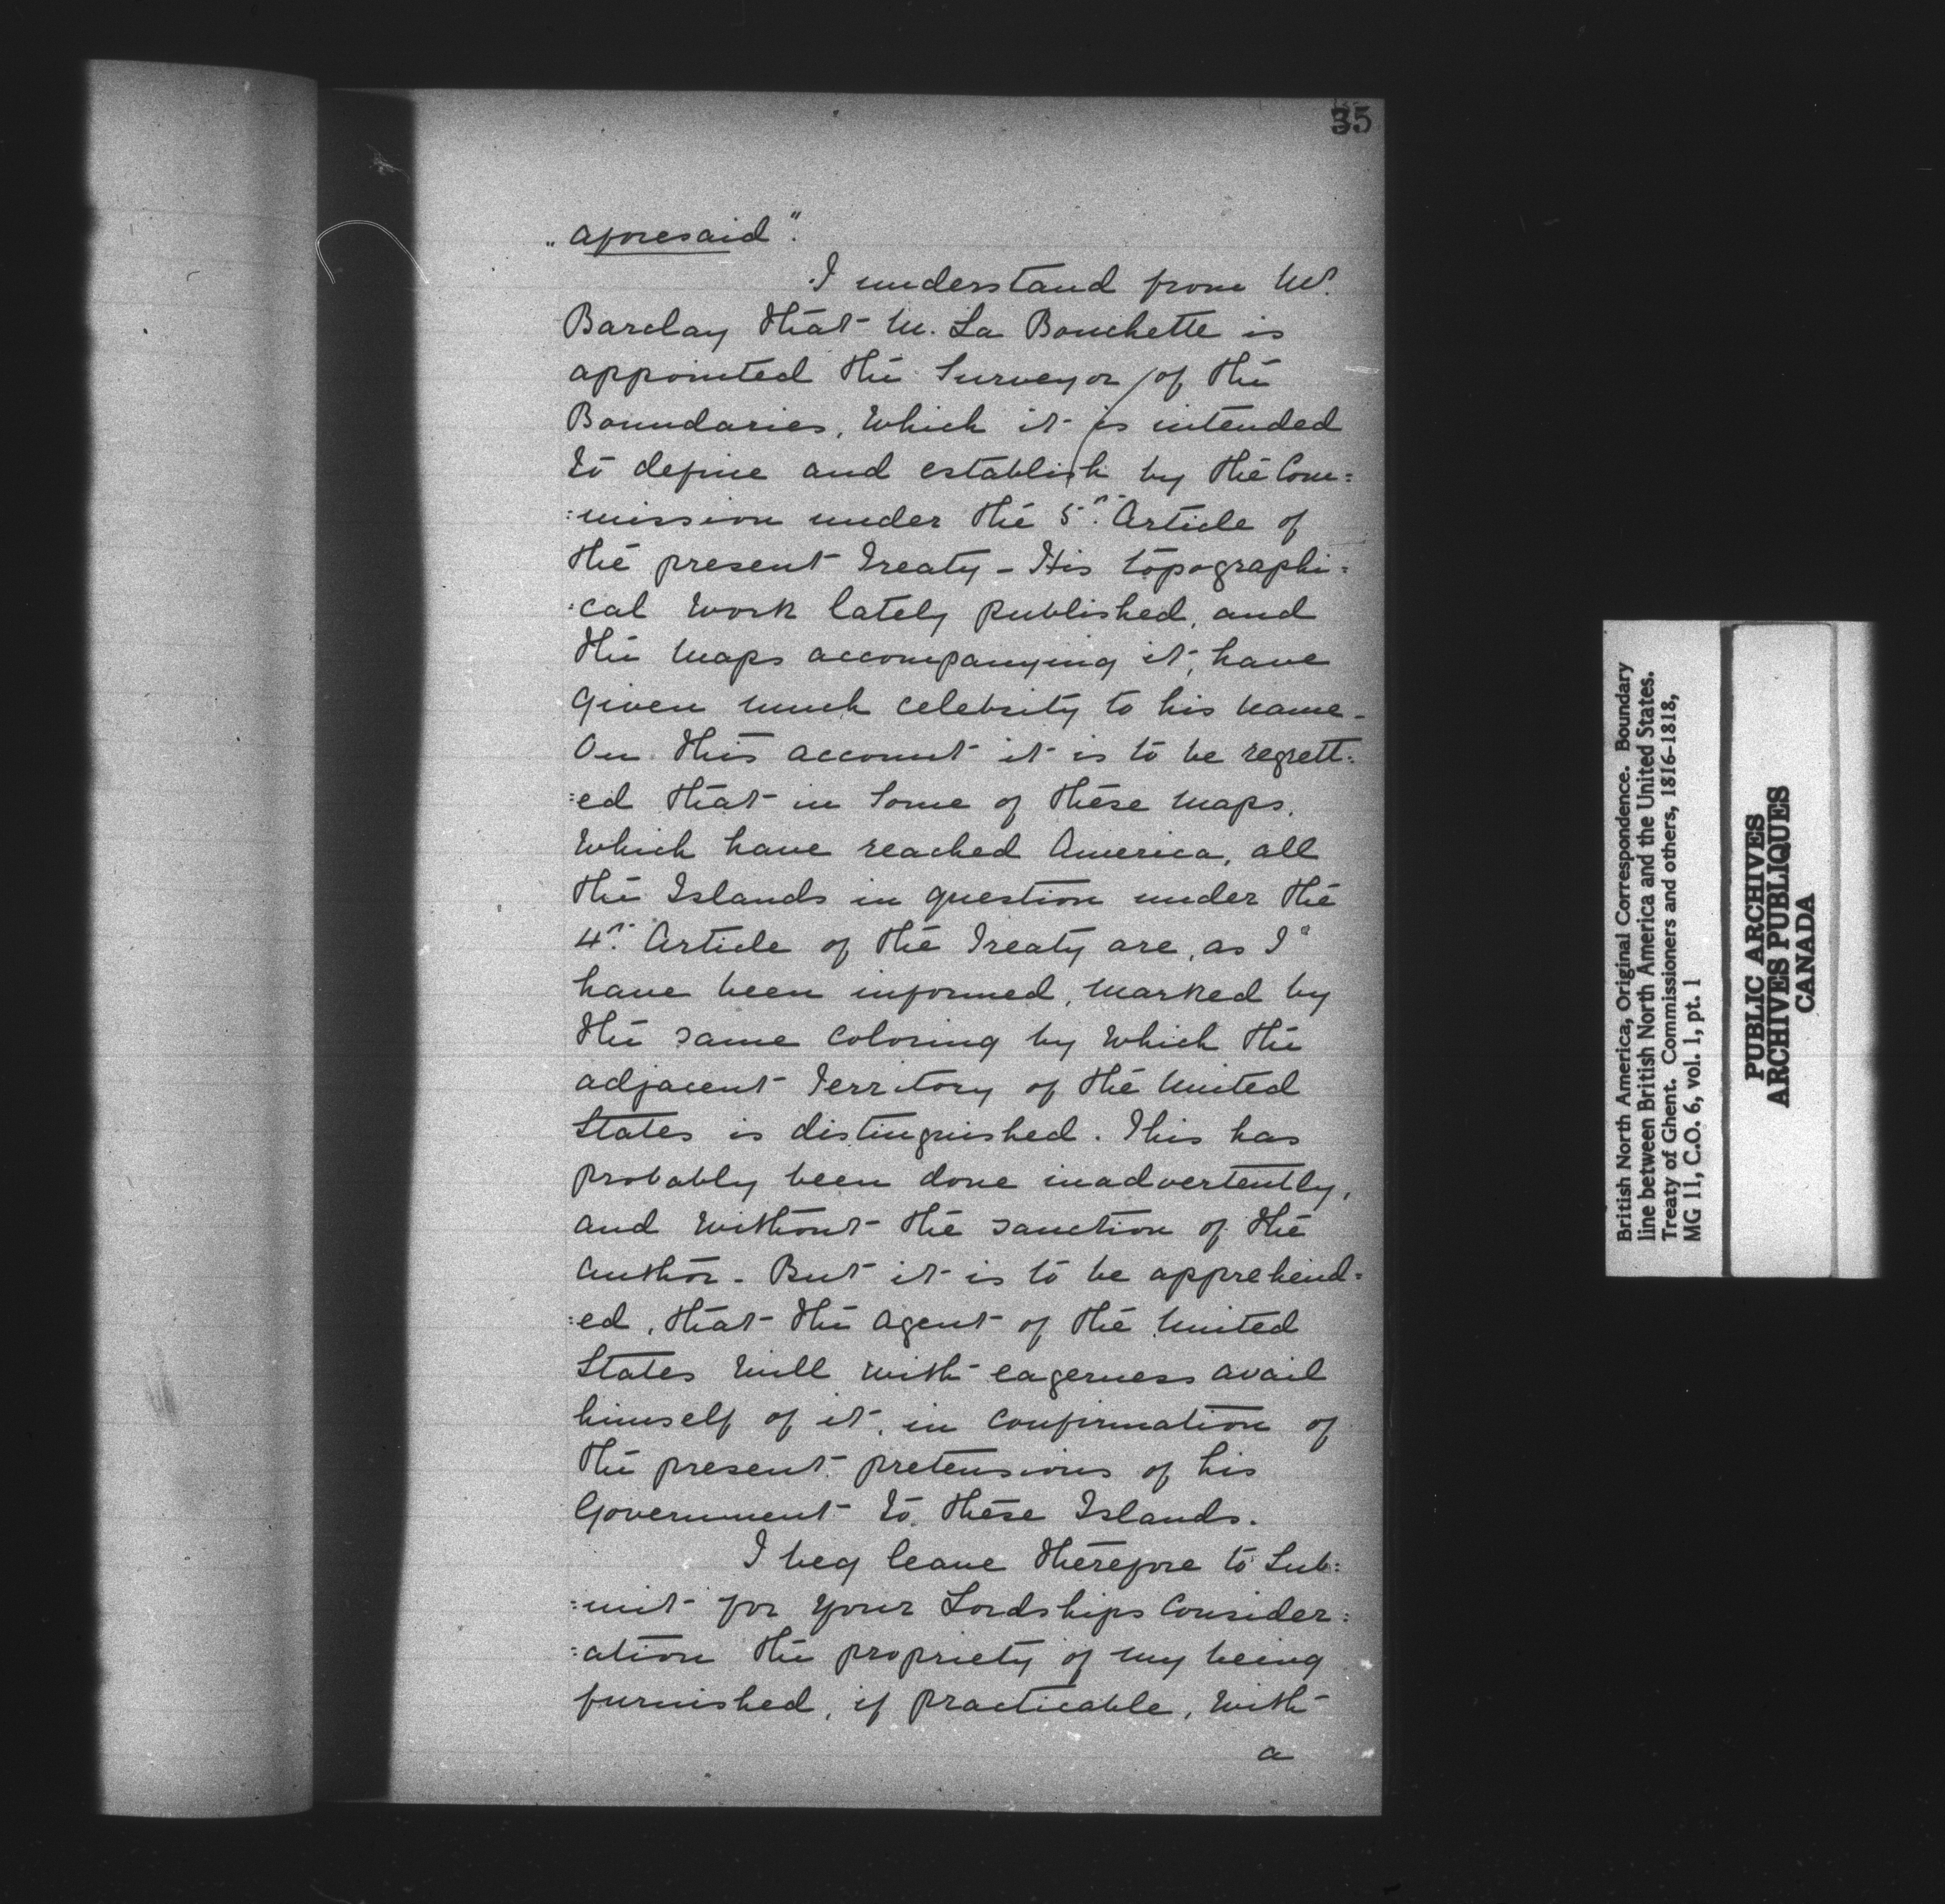 35
„aforesaid".
I understand from Mr.
Barclay that M. La Bouchette is
appointed the Surveyor of the
Boundaries, which it is intended
to define and establish by the Com=
=mission under the 5th. Article of
the present Treaty - His topographi=
=cal work lately published, and
the maps accompanying it, have
given much celebrity to his name -
On this account it is to be regrett=
=ed that in some of these maps,
which have reached America, all
the Islands in question under the
4th. Article of the Treaty are, as I
have been informed, marked by
the same coloring by which the
adjacent Territory of the United
States is distinguished. This has
probably been done inadvertently,
and without the sanction of the
Author - But it is to be apprehend=
=ed, that the Agent of the United
States will with eagerness avail
himself of it, in confirmation of
the present pretensions of his
Government to these Islands.
I beg leave therefore to Sub=
=mit for your Lordships Consider=
=ation the propriety of my being
furnished, if practicable, with
a
British North America, Original Correspondence. Boundary
line between British North America and the United States.
Treaty of Ghent. Commissioners and others, 1816-1818,
MG 11, C.O. 6, vol. 1, pt. 1
PUBLIC ARCHIVES
ARCHIVES PUBLIQUES
CANADA